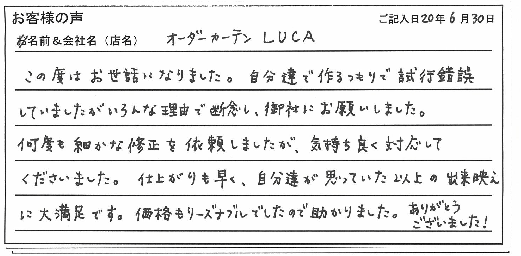 お客様の声 ご記入日20年6月30日
お名前&会社名(店名) オーダーカーテン LUCA
この度はお世話になりました。自分達で作るつもりで試行錯誤
していましたがいろんな理由で断念し、御社にお願いしました。
何度も細かな修正を依頼しましたが、気持ち良く対応して
くださいました。仕上がりも早く、自分達が思っていた以上の出来映え
に大満足です。価格もリーズナブルでしたので助かりました。ありがとう
ございました!